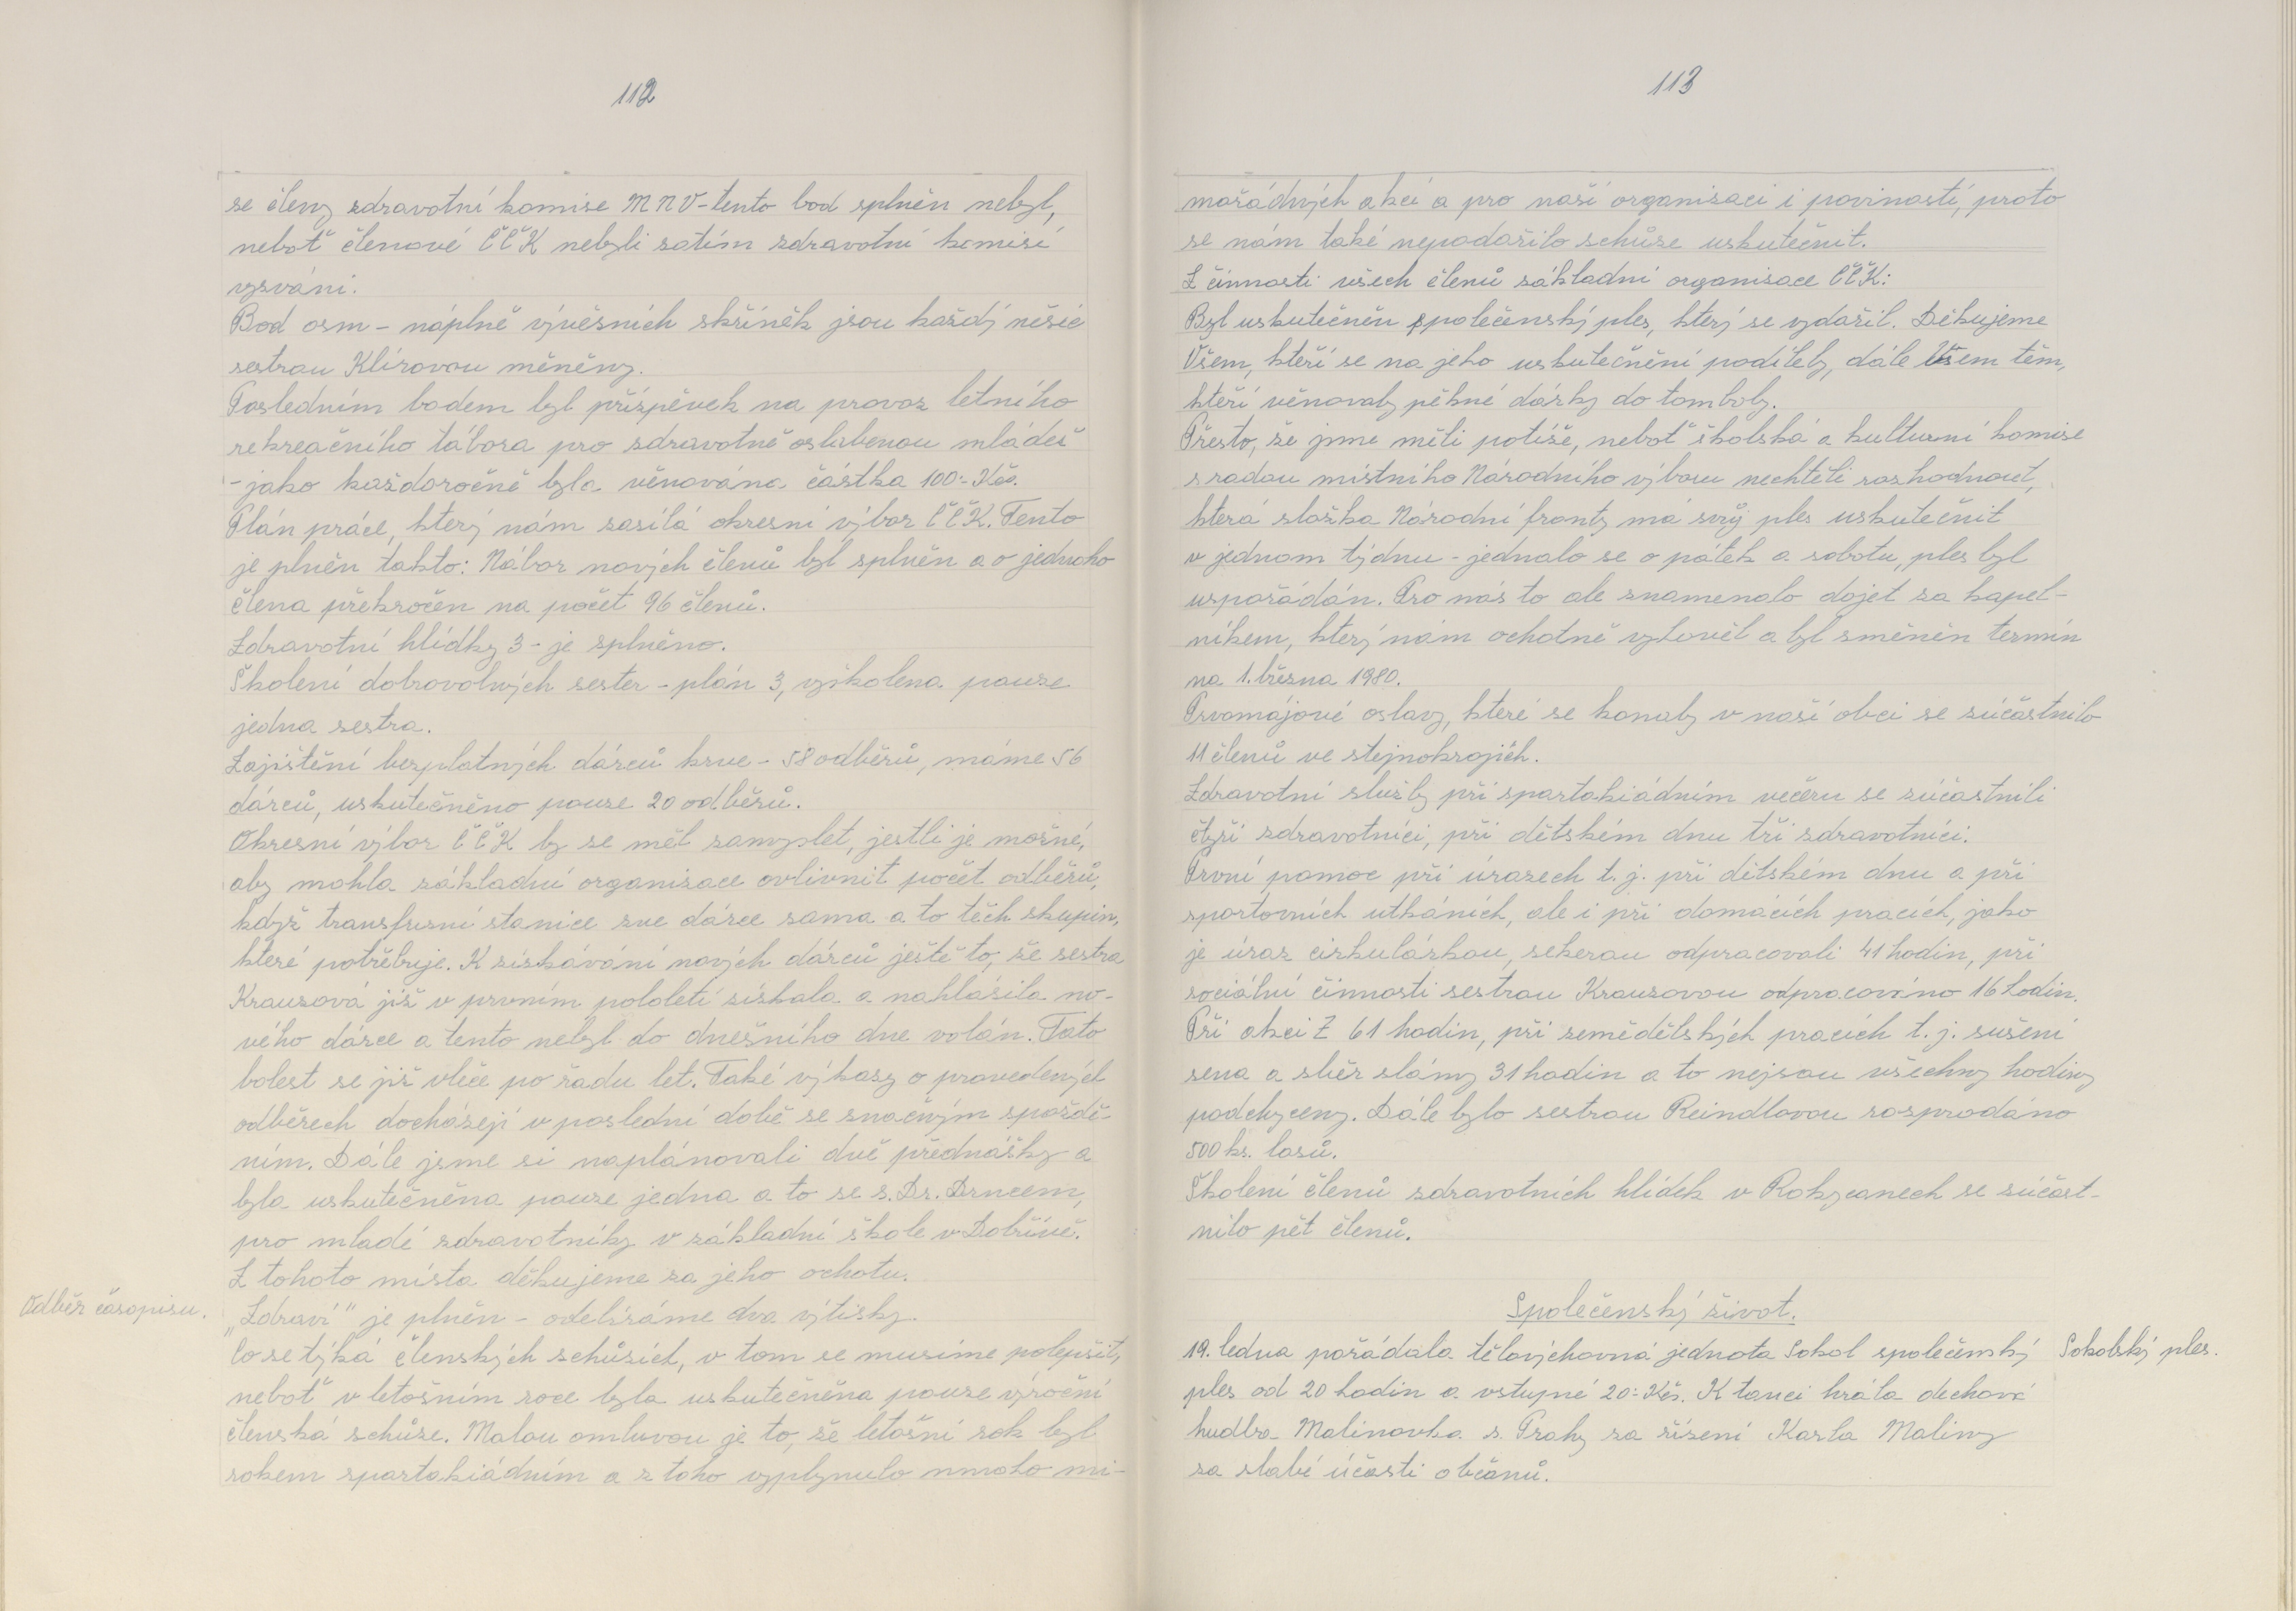 112
se členy zdravotní komise MNV-tento bod splněn nebyl,
neboť členové ČČK nebyli zatím zdravotní komisí
vyzváni.
Bod osm - náplně vývěsních skříněk jsou každý měsíc
sestrou Klírovou měněny.
Posledním bodem byl příspěvek na provoz letního
rekreačního tábora pro zdravotně oslabenou mládež
- jako každoročně byla věnována částka 100.- Kčs.
Plán práce, který nám zasílá okresní výbor ČČK. Tento
je plněn takto: Nábor nových členů byl splněn a o jednoho
člena překročen na počet 96 členů.
Zdravotní hlídky 3 - je splněno.
Školení dobrovolných sester - plán 3, vyškolena pouze
jedna sestra.
Zajištění bezplatných dárců krve - 58 odběrů, máme 56
dárců, uskutečněno pouze 20 odběrů.
Okresní výbor ČČK by se měl zamyslet, jestli je možné,
aby mohla základní organizace ovlivnit počet odběrů,
když transfusní stanice zve dárce sama a to těch skupin,
které potřebuje. K získávání nových dárců ještě to, že sestra
Krausová již v prvním pololetí získala a nahlásila no-
vého dárce a tento nebyl do dnešního dne volán. Tato
bolest se již vleče po řadu let. Také výkazy o provedených
odběrech docházejí v poslední době se značným spoždě-
ním. Dále jsme si naplánovali dvě přednášky a
byla uskutečněna pouze jedna a to se s. Dr. Drncem,
pro mladé zdravotníky v základní škole v Dobřívě.
Z tohoto místa děkujeme za jeho ochotu.
Odběr časopisu. „Zdraví" je plněn - odebíráme dva výtisky.
Co se týká členských schůzích, v tom se musíme polepšit,
neboť v letošním roce byla uskutečněna pouze výroční
členská schůze. Malou omluvou je to, že letošní rok byl
rokem spartakiádním a z toho vyplynulo mnoho mi-
113
mořádných akcí a pro naší organisaci i poviností, proto
se nám také nepodařilo schůze uskutečnit.
Z činnosti všech členů základní organisace ČČK:
Byl uskutečněn společenský ples, který se vydařil. Děkujeme
Všem, kteří se na jeho uskutečnění podílely, dále Všem těm,
kteří věnovaly pěkné dárky do tomboly.
Přesto, že jsme měli potíže, neboť školská a kulturní komise
s radou místního Národního výboru nechtěli rozhodnout,
která složka Národní fronty má svůj ples uskutečnit
v jednom týdnu - jednalo se o pátek a sobotu, ples byl
uspořádán. Pro nás to ale znamenalo dojet za kapel-
níkem, který nám ochotně vyhověl a byl směněn termín
na 1. března 1980.
Prvomájové oslavy, které se konaly v naší obci se zúčastnilo
11 členů ve stejnokrojích.
Zdravotní služby při spartakiádním večeru se zúčastnili
čtyři zdravotníci, při dětském dnu tři zdravotníci.
První pomoc při úrazech t. j. při dětském dnu a při
sportovních utkáních, ale i při domácích pracích, jako
je úraz cirkulárkou, sekerou odpracovali 41 hodin, při
sociální činnosti sestrou Krausovou odpracováno 16 hodin.
Při akci Z 61 hodin, při zemědělských pracích t. j. sušení
sena a sběr slámy 31 hodin a to nejsou všechny hodiny
podchyceny. Dále bylo sestrou Reindlovou rozprodáno
500 ks. losů.
Školení členů zdravotních hlídek v Rokycanech se zúčast-
nilo pět členů.
Společenský život.
19. ledna pořádala tělovýchovná jednota Sokol společenský Sokolský ples.
ples od 20 hodin a vstupné 20.- Kčs. K tanci hrála dechová
hudba Malinovka z Prahy za řízení Karla Maliny
za slabé účasti občanů.